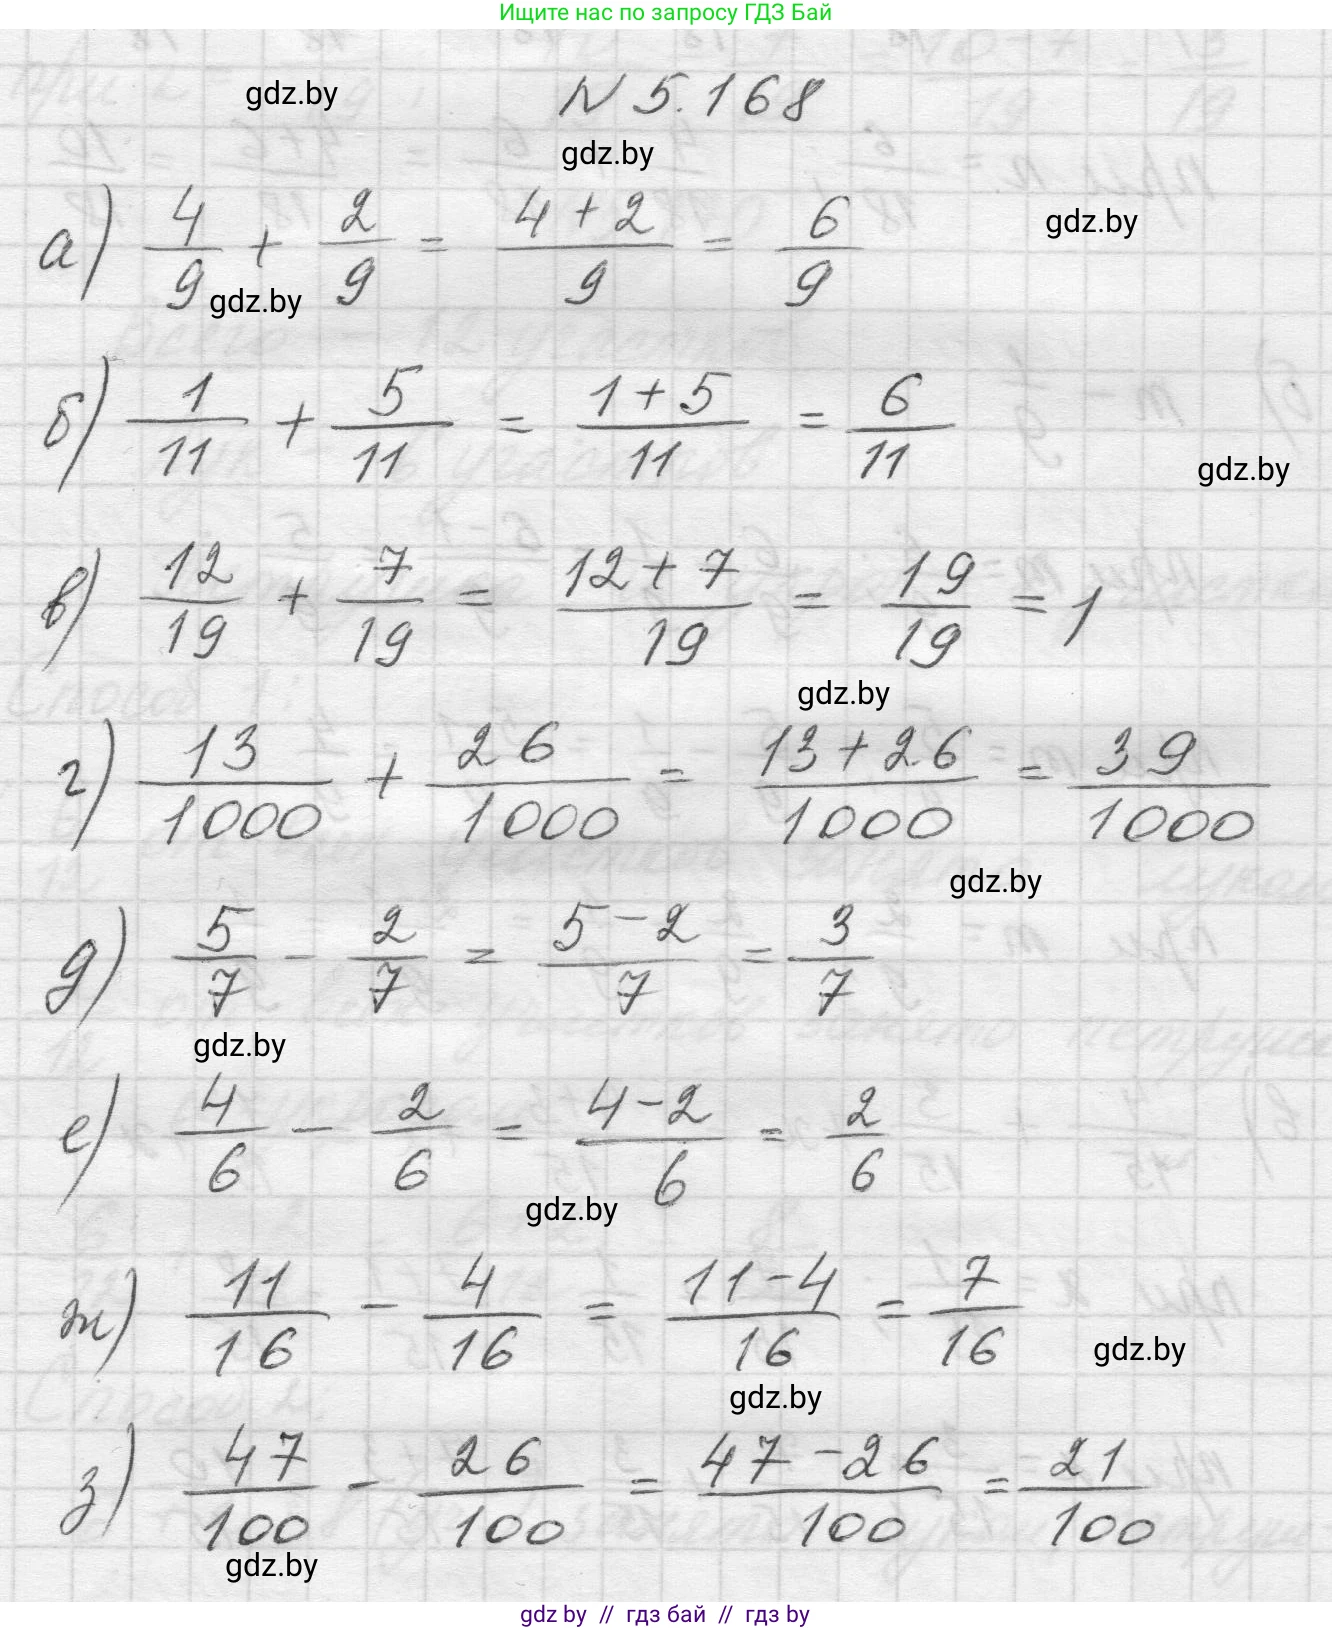 Ищите нас по запросу ГДЗ Бай
gdz.by
N 5.168
gdz.by
а) 4/9 + 2/9 = (4+2)/9 = 6/9
gdz.by
gdz.by
б) 1/11 + 5/11 = (1+5)/11 = 6/11
gdz.by
в) 12/19 + 7/19 = (12+7)/19 = 19/19 = 1
gdz.by
г) 13/1000 + 26/1000 = (13+26)/1000 = 39/1000
gdz.by
д) 5/7 - 2/7 = (5-2)/7 = 3/7
gdz.by
е) 4/6 - 2/6 = (4-2)/6 = 2/6
gdz.by
ж) 11/16 - 4/16 = (11-4)/16 = 7/16
gdz.by
gdz.by
з) 47/100 - 26/100 = (47-26)/100 = 21/100
gdz.by
gdz by // гдз бай // гдз by